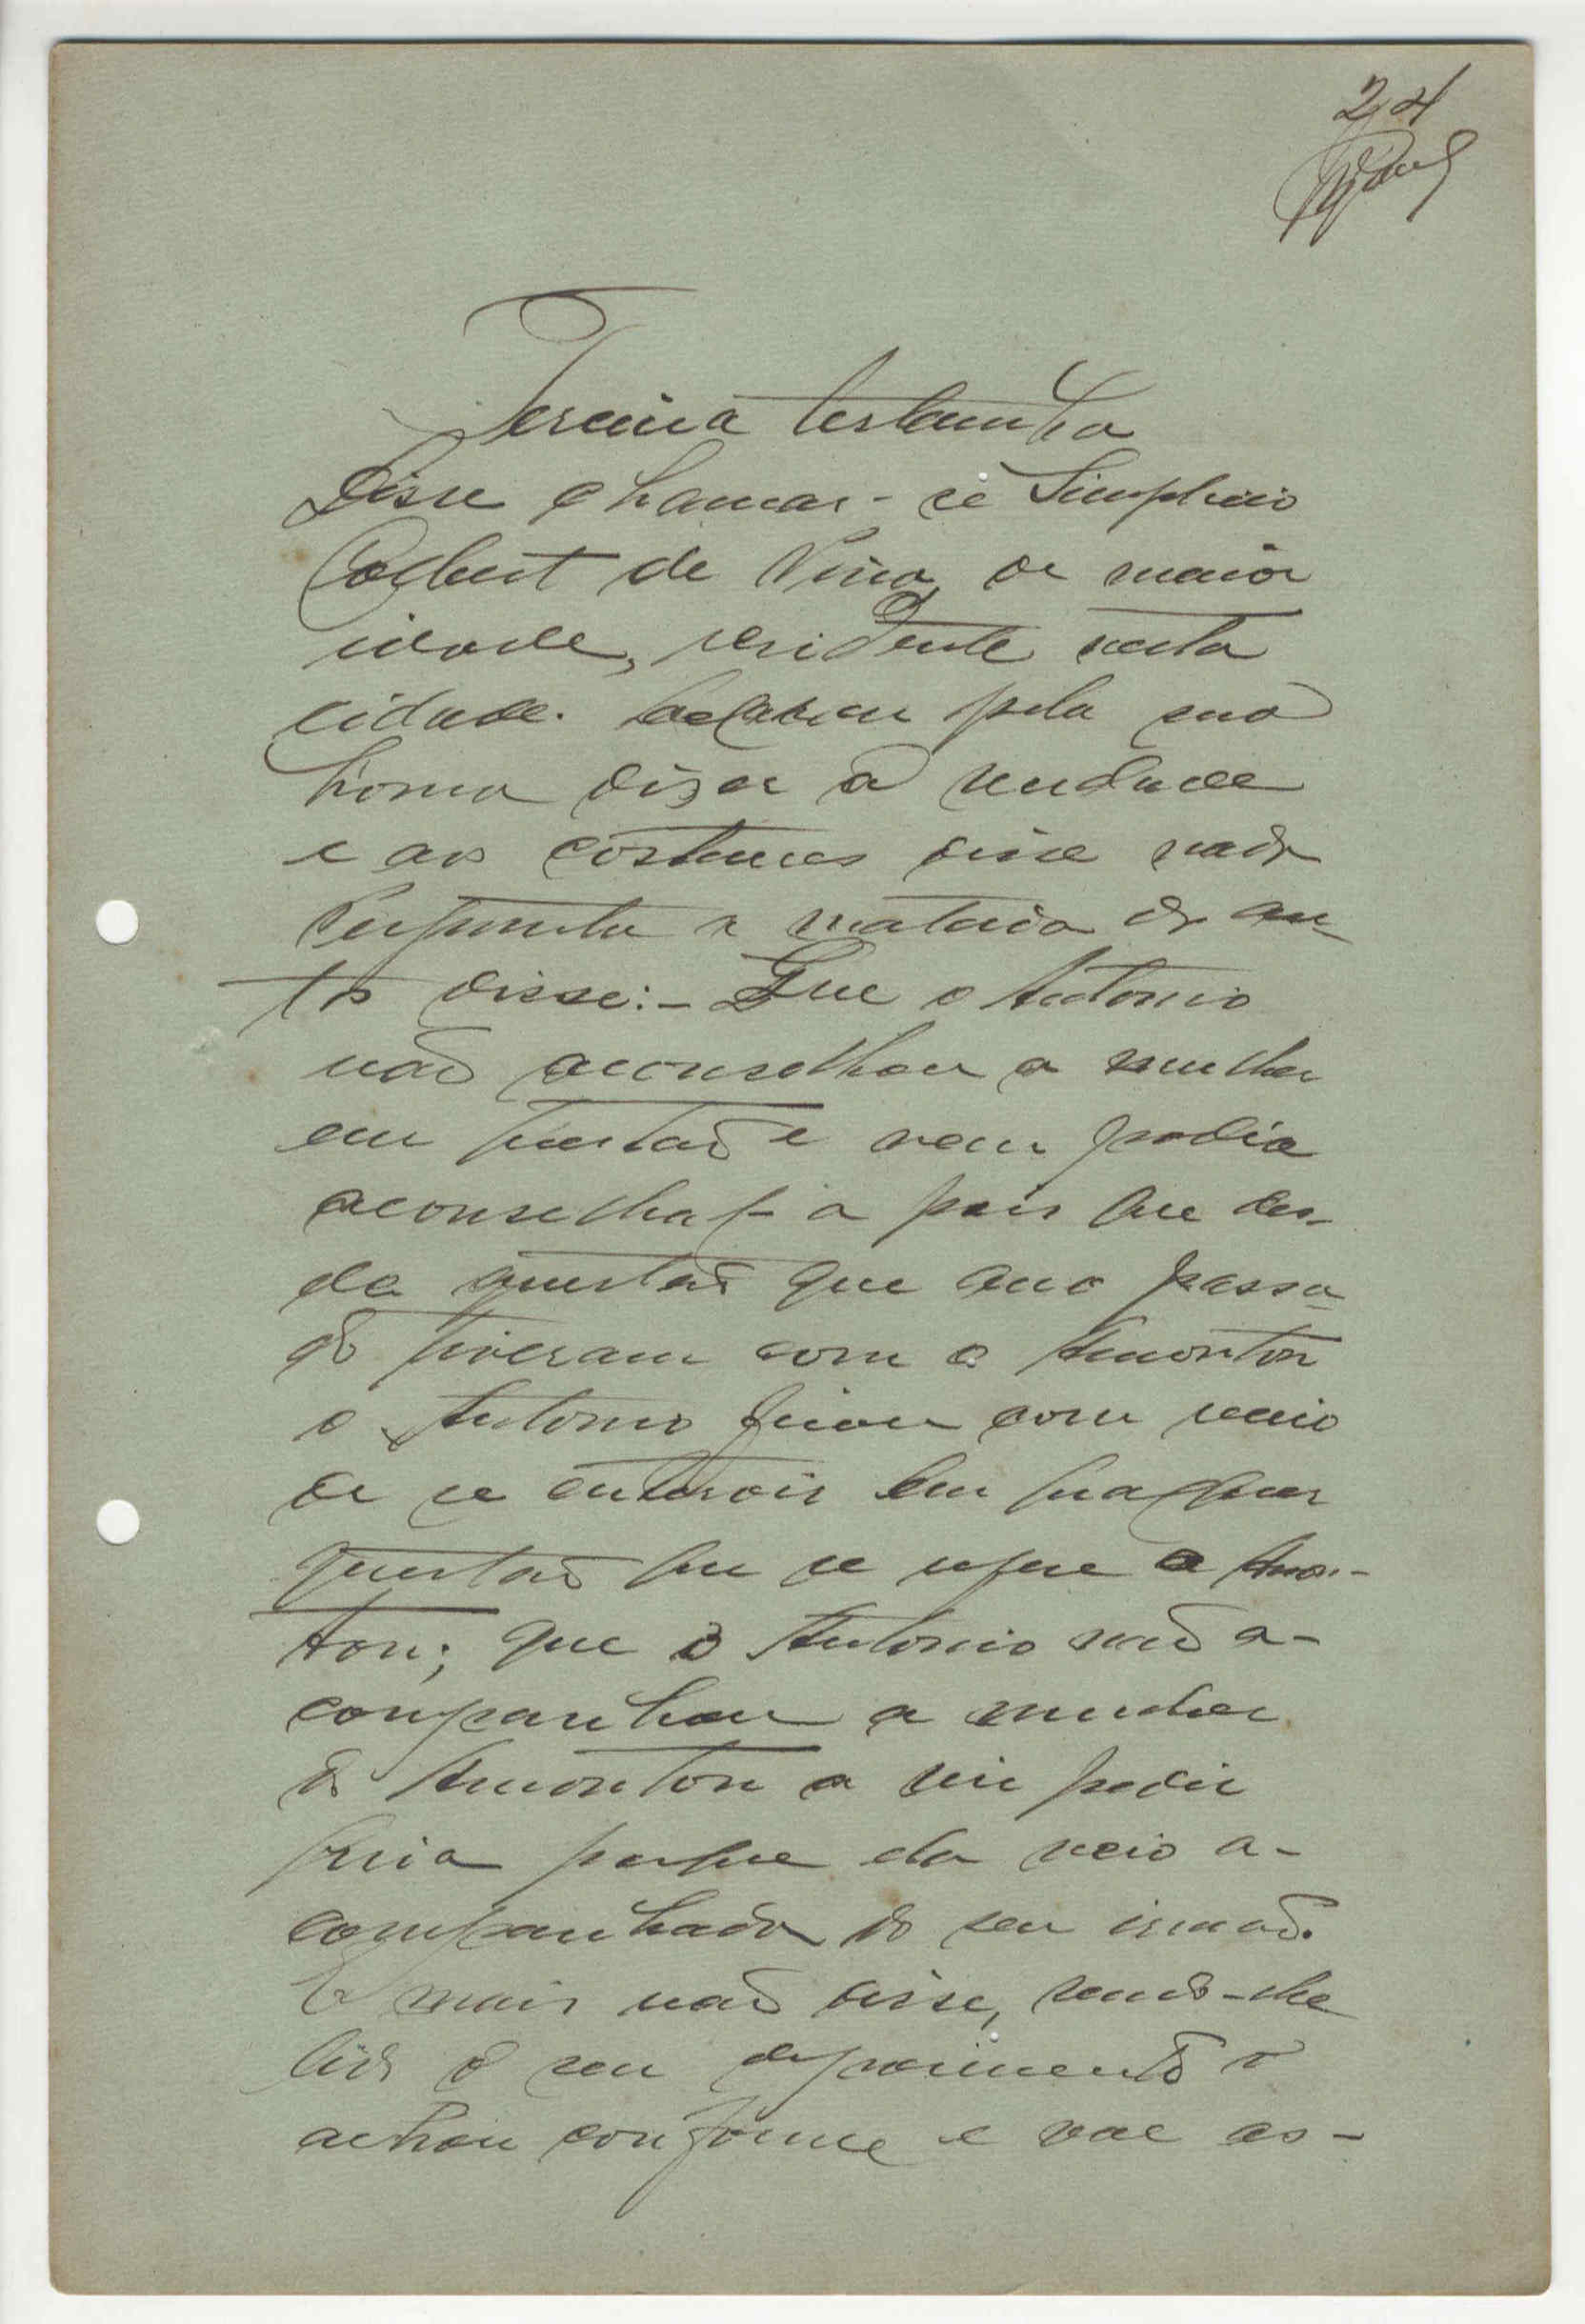 24
Terceira testemunha
Disse chamar-se Simplicio
de de maior
idade, residente nesta
cidade. Declarou pela sua
honra dizer a verdade
e aos costumes disse nada
Perguntado a materia do au-
to disse:- Que o Antonio
não aconselhou a mulher
em questão e nem podia
aconselhal-a pois que des-
de questão que ano passa-
do tiveram com o Amonton
o Antonio ficou com receio
de se em qualquer
questão que se refere a Amon-
ton; que o Antonio não a-
companhou a mulher
do Amonton a vir pedir
porque ela veio a-
companhada do seu irmão.
E mais não disse, sendo-lhe
lido o seu depoimento o
achou conforme e vae as-